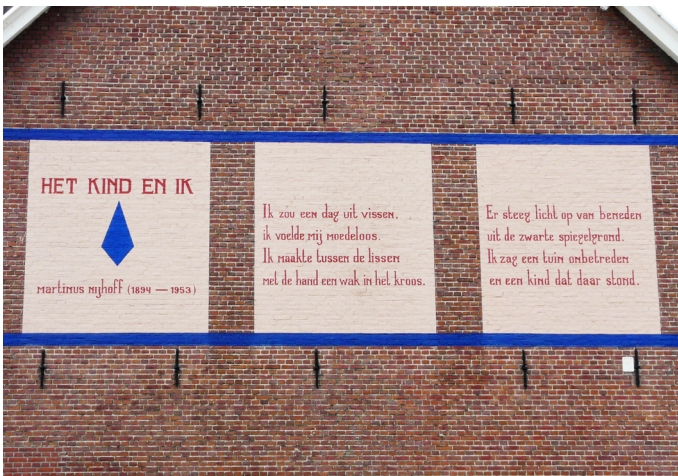 HET KIND EN IK
martinus nijhoff (1894 — 1953)
Ik zou een dag uit vissen,
ik voelde mij moedeloos.
Ik maakte tussen de lissen
met de hand een wak in het kroos.
Er steeg licht op van beneden
uit de zwarte spiegelgrond.
Ik zag een tuin onbetreden
en een kind dat daar stond.